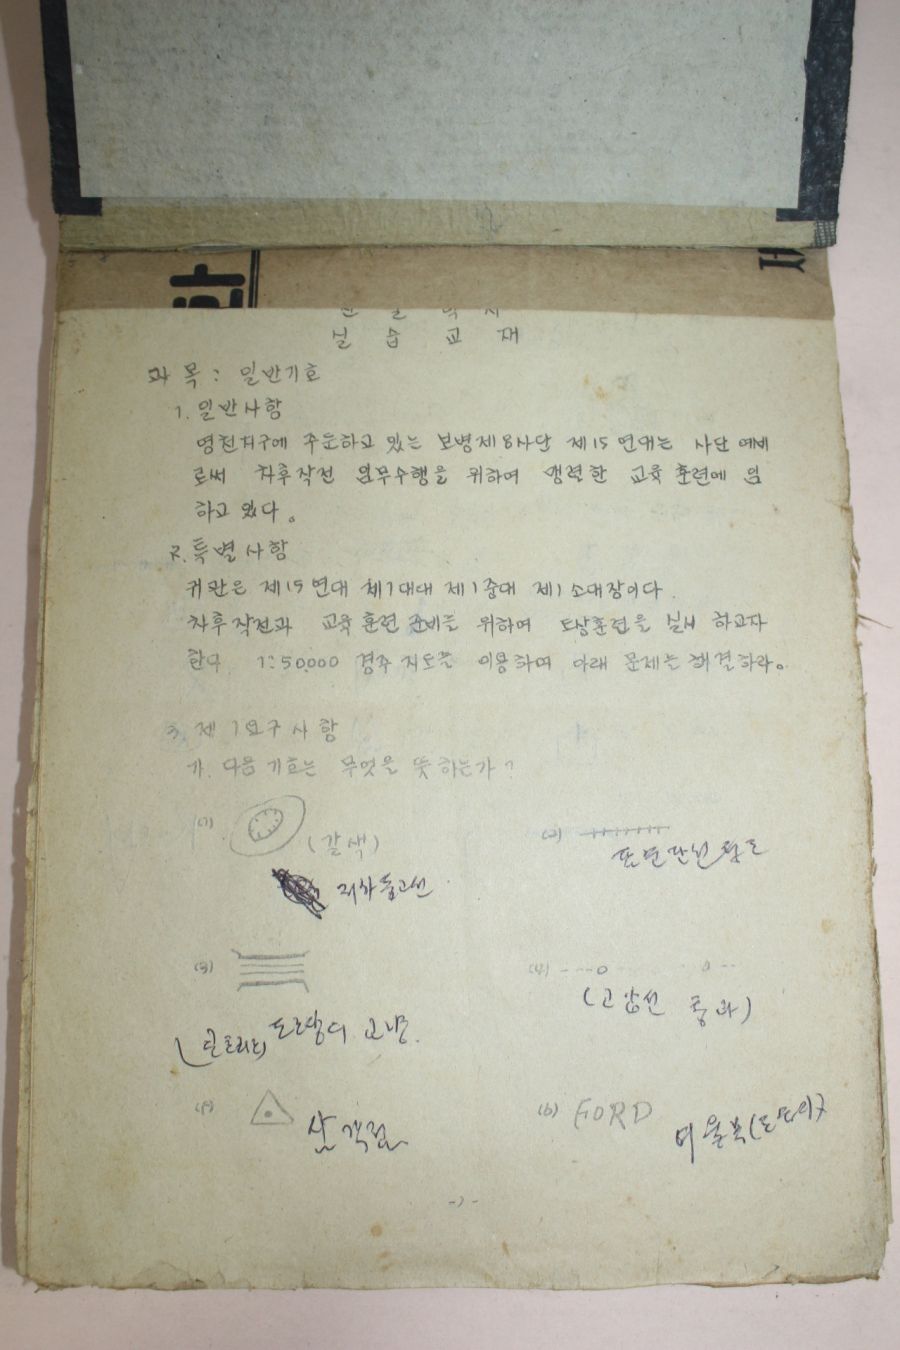 실습교재
과목: 일반기호
1. 일반사항
영천지구에 주둔하고 있는 보병제8사단 제15연대는 사단 예비
로써 차후작전 임무수행을 위하여 맹렬한 교육훈련에 임
하고 있다。
2. 특별사항
귀관은 제15연대 제1대대 제1중대 제1소대장이다.
차후작전과 교육훈련 준비를 위하여 도상훈련을 실시 하고자
한다 1:50,000 경주지도를 이용하여 아래 문제를 해결하라。
3. 제1요구사항
가. 다음 기호는 무엇을 뜻하는가?
(1) (갈색)
(2)
(3)
(4)
(고압선 통과)
(5)
삼각점
(6) FORD